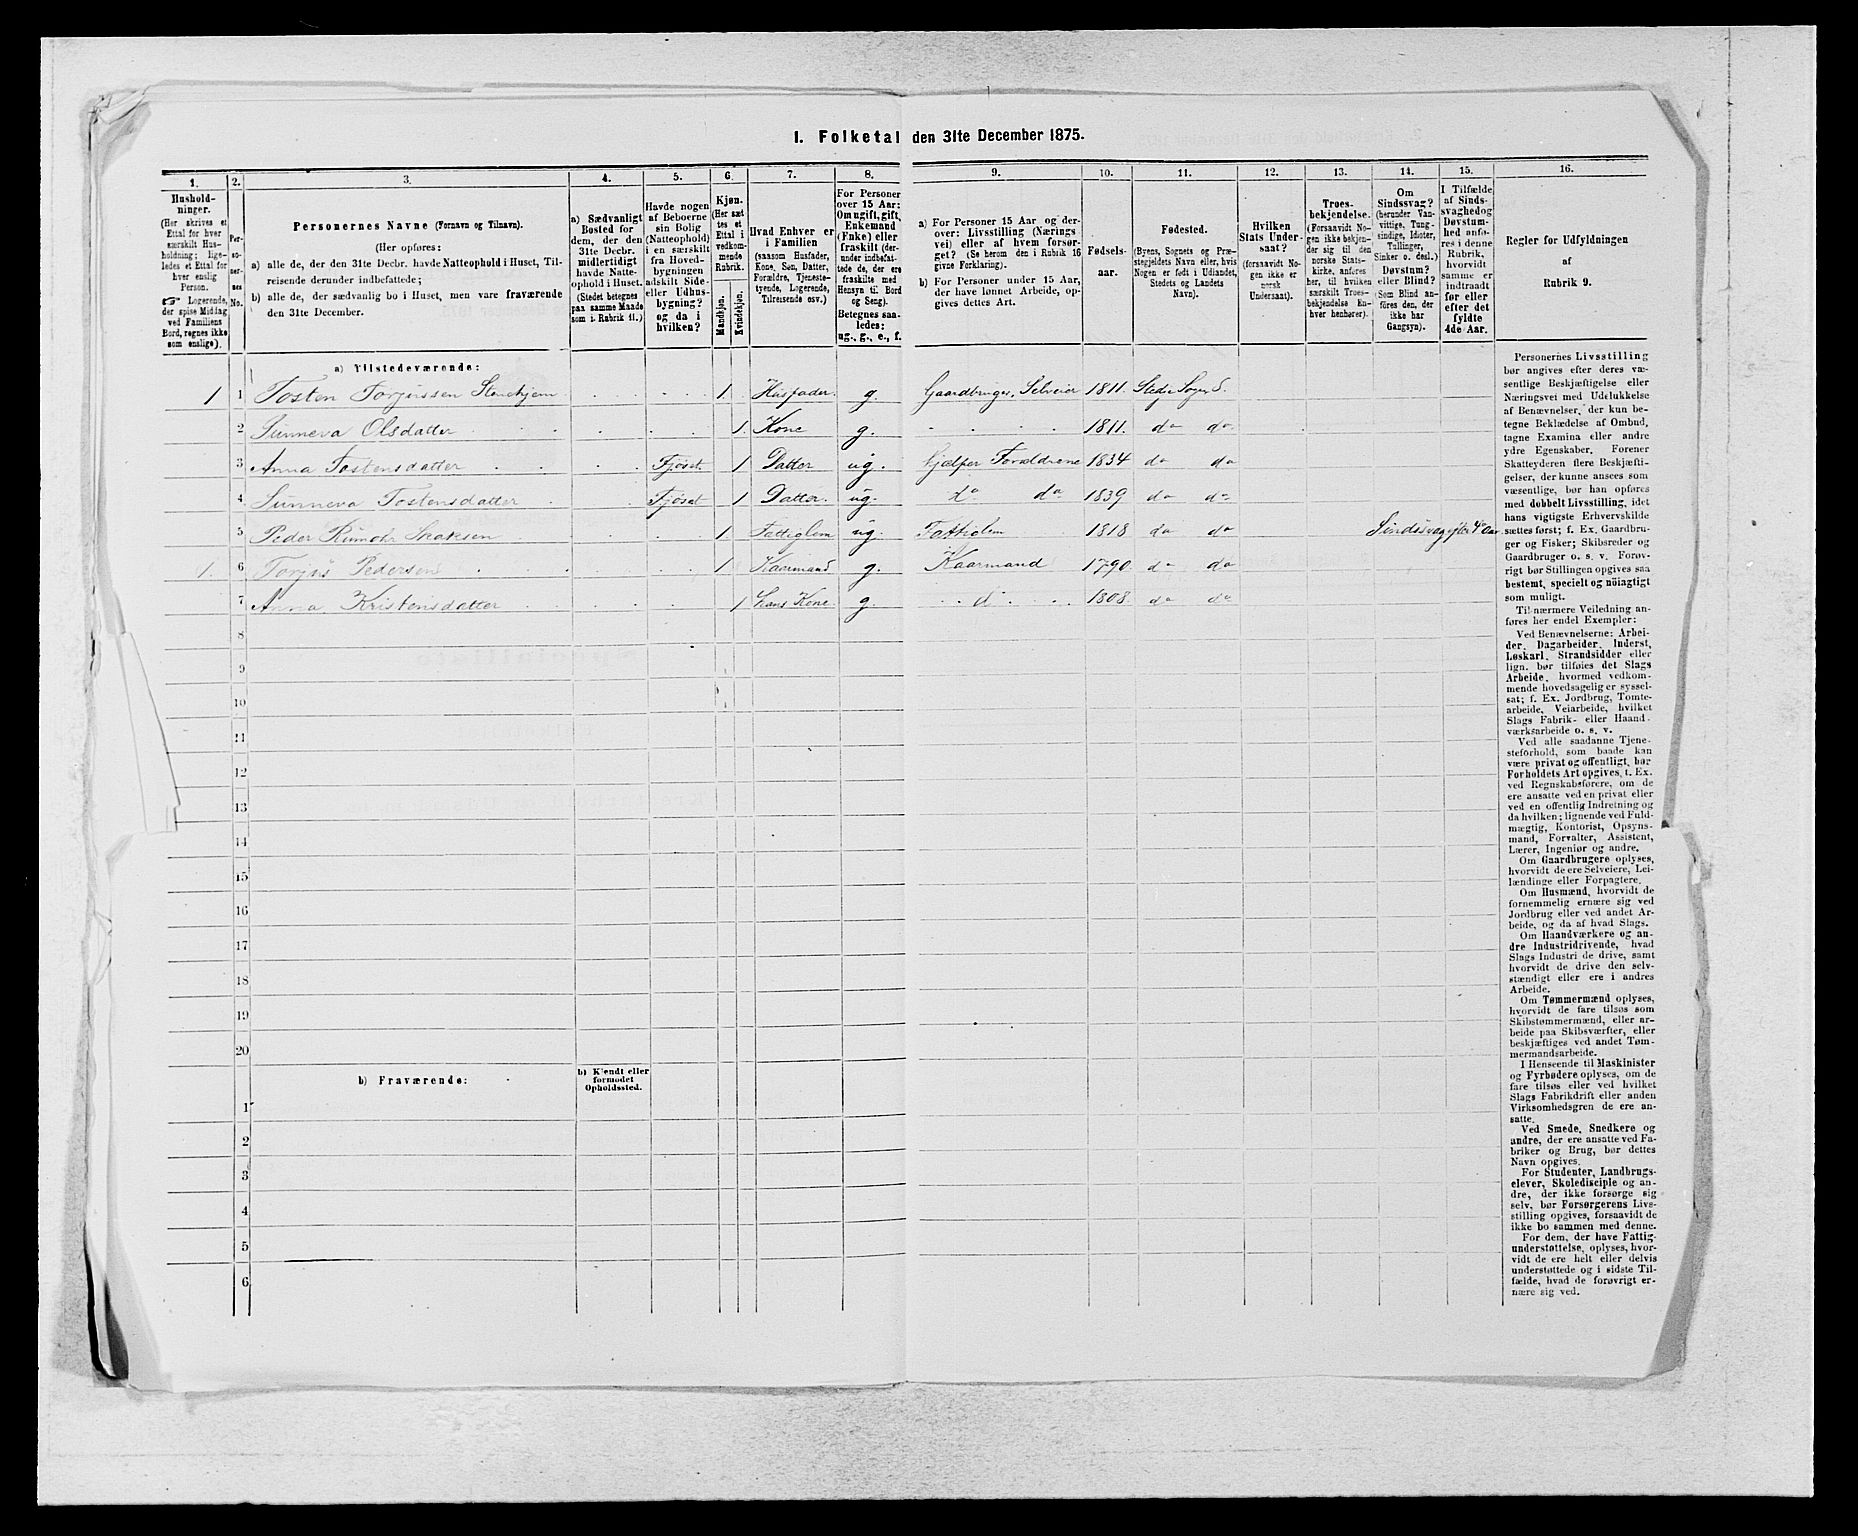 I. Folketal den 31te December 1875.
1. 2. 3. 4. 5. 6. 7. 8. 9. 10. 11. 12. 13. 14. 15. 16.
Hushold-
ninger.
(Her skrives et
Ettal for hver
særskilt Hus-
holdning; lige-
ledes et Ettal for
hver enslig
Person.
☞ Logerende,
der spise Middag
ved Familiens
Bord, regnes ikke
som enslige).
Per-
so-
ner-
nes
No.
Personernes Navne (Fornavn og Tilnavn).
(Her opføres:
a) alle de, der den 31te Decbr. havde Natteophold i Huset, Til-
reisende derunder indbefattede;
b) alle de, der sædvanlig bo i Huset, men vare fraværende
den 31te December.
a) Sædvanligt
Bosted for
dem, der den
31te Decbr.
midlertidigt
havde Natte-
ophold i Huset.
(Stedet betegnes
paa samme Maade
som i Rubrik 11.)
Havde nogen
af Beboerne
sin Bolig
(Natteophold)
i en særskilt
fra Hoved-
bygningen
adskilt Side-
eller Udhus-
bygning?
og da i
hvilken?
Kjøn.
(Her sæt
tes et
Ettal i
vedkom-
mende
Rubrik.
Mandkjøn.
Kvindekjøn.
Hvad Enhver er
i Familien
(saasom Husfader,
Kone, Søn, Datter,
Forældre, Tjeneste-
tyende, Logerende,
Tilreisende osv.)
For Personer
over 15 Aar:
Om ugift, gift,
Enkemand
(Enke) eller
fraskilt (der-
under indbefat-
tede de, der ere
fraskilte med
Hensyn til Bord
og Seng).
Betegnes saa-
ledes:
ug., g., e., f.
a) For Personer 15 Aar og der-
over: Livsstilling (Nærings
vei) eller af hvem forsør-
get? (Se herom den i Rubrik 16
givne Forklaring).
b) For Personer under 15 Aar,
der have lønnet Arbeide, op-
gives dettes Art.
Fødsels-
aar.
Fødested.
(Byens, Sognets og Præ-
stegjeldets Navn eller, hvis
Nogen er født i Udlandet,
Stedets og Landets
Navn).
Hvilken
Stats Under-
saat?
(forsaavidt No-
gen ikke er
norsk
Undersaat).
Troes-
bekjendelse.
(Forsaavidt No-
gen ikke bekjen-
der sig til den
norske Stats-
kirke, anføres
her, til hvilken
særskilt Troes-
bekjendelse En-
hver henhører).
Om
Sindssvag?
(herunder Van-
vittige, Tung-
sindige, Idioter,
Tullinger,
Sinker o. desl.)
Døvstum?
eller Blind?
(Som Blind an-
føres den, der
ikke har
Gangsyn).
I Tilfælde
af Sinds-
svaghed og
Døvstum-
hed anfø-
res i denne
Rubrik,
hvorvidt
samme er
indtraadt
før eller
efter det
fyldte
4de Aar.
Regler for Udfyldningen
af
Rubrik 9.
a) Tilstedeværende:
1 1 Tosten Torjussen Stenehjem 1. Husfader g. Gaardbruger, Selveier 1811. Stedje Sogn S.
2 Sunneva Olsdatter 1. Kone g. 1811. do do
3 Anna Tostensdatter Fjøset 1 Datter ug. hjelper Forældrene 1834 do do
4 Sunneva Tostensdatter Fjøset 1 Datter. ug. do do 1839 do do
5 Peder Rumohr 1 Fattiglem ug. Fattiglem 1818 do do Sindssvag efter 4de Aar
1. 6 Torjus Pedersen 1 Kaarmand g. Kaarmand 1790. do do
7 Anna Kristensdatter 1 Hans Kone. g. do 1808. do do
8
9
10
11
12
13
14
15
16
17
18
19
20
b) Fraværende:
b) Kjendt eller
formodet
Opholdssted.
1
2
3
4
5
6
Personernes Livsstilling
bør angives efter deres væ-
sentlige Beskjæftigelse eller
Næringsvei med Udelukkelse
af Benævnelser, der kun be-
tegne Beklædelse af Ombud,
tagne Examina eller andre
ydre Egenskaber. Forener
Skatteyderen flere Beskjæfti-
gelser, der kunne ansees som
væsentlige, bør han opføres
med dobbelt Livsstilling, idet
hans vigtigste Erhvervskilde
sættes først; f. Ex. Gaardbru-
ger og Fisker; Skibsreder og
Gaardbruger o. s. v. Forøv-
rigt bør Stillingen opgives saa
bestemt, specielt og nöiagtigt
som muligt.
Til nærmere Veiledning an-
føres her endel Exempler:
Ved Benævnelserne: Arbei-
der, Dagarbeider, Inderst,
Løskarl, Strandsidder eller
lign. bør tilføies det Slags
Arbeide, hvormed vedkom-
mende hovedsagelig er syssel-
sat; f. Ex. Jordbrug, Tomte-
arbeide, Veiarbeide, hvilket
Slags Fabrik- eller Haand-
værksarbeide o. s. v.
Ved alle saadanne Tjene-
steforhold, som baade kan
være privat og offentligt, bør
Forholdets Art opgives, t. Ex.
ved Regnskabsførere, om de
ere ansatte ved en privat eller
ved en offentlig Indretning og
da hvilken; lignende ved Fuld-
mægtig, Kontorist, Opsyns-
mand, Forvalter, Assistent,
Lærer, Ingeniør og andre.
Om Gaardbrugere oplyses,
hvorvidt de ere Selveiere, Lei-
lændinge eller Forpagtere.
Om Husmænd, hvorvidt de
fornemmelig ernære sig ved
Jordbrug eller ved andet Ar-
beide, og da af hvad Slags.
Om Haandværkere og an-
dre Industridrivende, hvad
Slags Industri de drive, samt
hvorvidt de drive den selv-
stændigt eller ere i andres
Arbeide.
Om Tømmermænd oplyses,
hvorvidt de fare tilsøs som
Skibstømmermænd, eller ar-
beide paa Skibsværfter, eller
beskjæftiges ved andet Tøm-
mermandsarbeide.
I Henseende til Maskinister
og Fyrbødere oplyses, om de
fare tilsøs eller ved hvilket
Slags Fabrikdrift eller anden
Virksomhedsgren de ere an-
satte.
Ved Smede, Snedkere og
andre, der ere ansatte ved Fa-
briker og Brug, bør dettes
Navn opgives.
For Studenter, Landbrugs-
elever, Skoledisciple og an-
dre, der ikke forsørge sig
selv, bør Forsørgerens Livs-
stilling opgives, forsaavidt de
ikke bo sammen med denne.
For dem, der have Fattig-
understøttelse, oplyses, hvor-
vidt de ere helt eller delvis
understøttede og i sidste Til-
fælde, hvad de forøvrigt er-
nære sig ved.